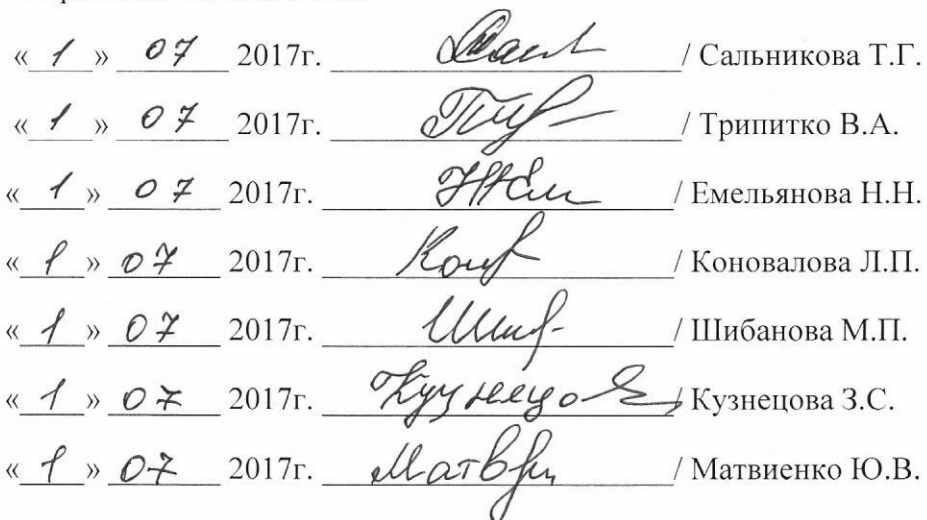 « 1 » 07 2017г. / Сальникова Т.Г.
« 1 » 07 2017г. / Трипитко В.А.
« 1 » 07 2017г. / Емельянова Н.Н.
« 1 » 07 2017г. / Коновалова Л.П.
« 1 » 07 2017г. / Шибанова М.П.
« 1 » 07 2017г. Кузнецова / Кузнецова З.С.
« 1 » 07 2017г. / Матвиенко Ю.В.